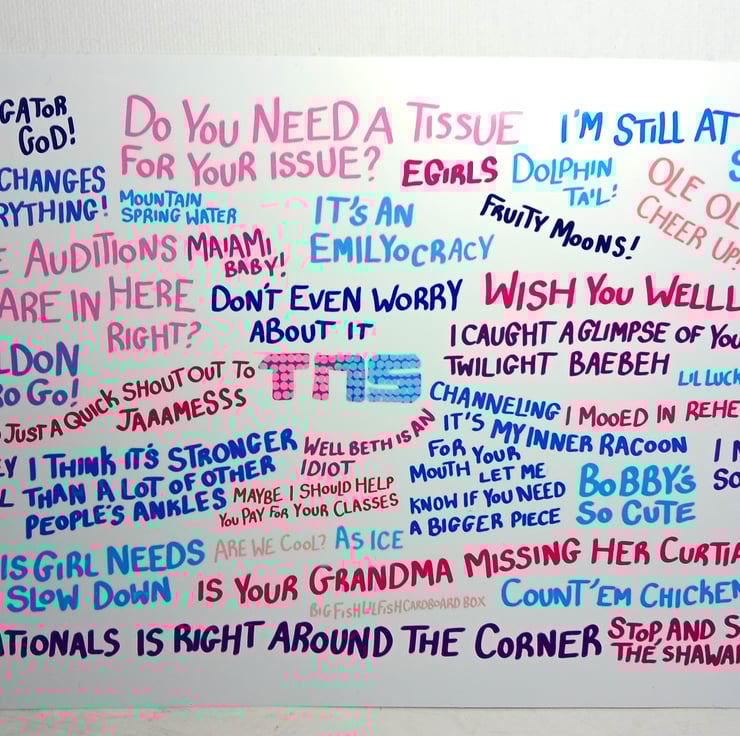 GATOR
GOD!
DO YOU NEED A TISSUE
FOR YOUR ISSUE?
I'M STILL AT
S
CHANGES
RYTHING!
MOUNTAIN
SPRING WATER
EGIRLS
DOLPHIN
TA'L!
OLE OL
CHEER UP!
IT'S AN
EMILYOCRACY
FRUITY MOONS!
E AUDITIONS
MA'AMI
BABY!
ARE IN HERE
RIGHT?
DON'T EVEN WORRY
ABOUT IT
WISH YOU WELLL
I CAUGHT A GLIMPSE OF YOU
TWILIGHT BAEBEH
LDON
SO GO!
JUST A QUICK SHOUT OUT TO
JAAAMESSS
TNS
LIL LUCK
CHANNELING
IT'S MY INNER RACOON
I MOOED IN REHE
EY I THINK IT'S STRONGER
L THAN A LOT OF OTHER
PEOPLE'S ANKLES
WELL BETH IS AN
IDIOT
MAYBE I SHOULD HELP
YOU PAY FOR YOUR CLASSES
FOR YOUR
MOUTH LET ME
KNOW IF YOU NEED
A BIGGER PIECE
BOBBY'S
SO CUTE
SO
IS GIRL NEEDS
SLOW DOWN
ARE WE COOL?
AS ICE
IS YOUR GRANDMA MISSING HER CURTA
BIG FISH LILFISH CARDBOARD BOX
COUNT'EM CHICKEN
ATIONALS IS RIGHT AROUND THE CORNER
STOP AND S
THE SHAWAR